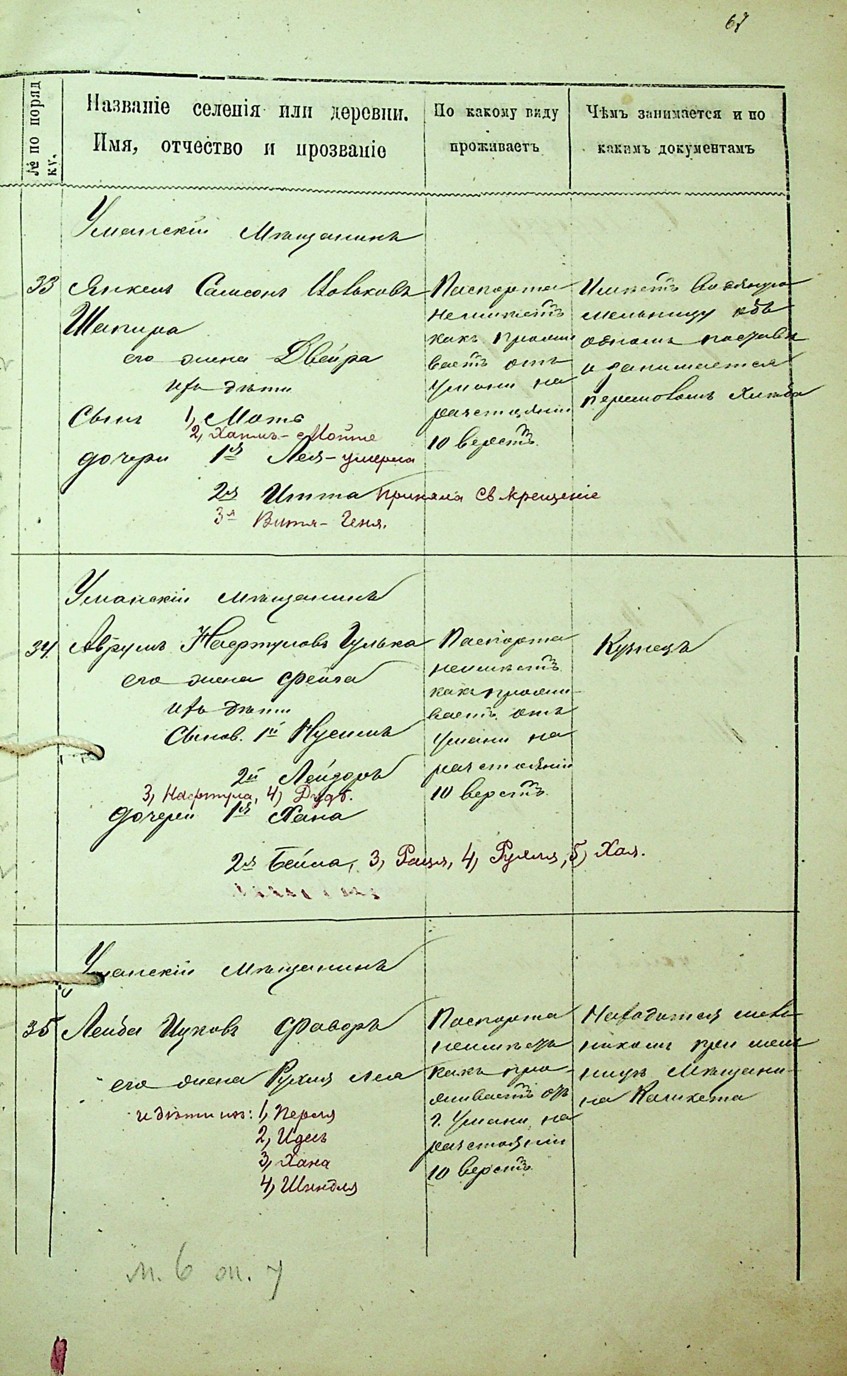 67
№ по поряд
ку.
Названіе селенія или деревни.
Имя, отчество и прозваніе
По какому виду
проживаетъ
Чѣмъ занимается и по
какимъ документамъ
Уманскій Мѣщанинъ
33
Янкель Самсонъ Вольковъ
Шапира
его жена Двейра
ихъ дѣти
Сынъ 1, Мотъ
2, Хаимъ-Мойше
дочери 1я Лея - умерла
2я Итта приняла св крещеніе
3я Витя - Геня.
Паспорта
неимѣетъ
какъ прожи
ваетъ отъ
Умани на
разстояніи
10 верстъ
Имѣетъ водяную
мельницу объ
одномъ поставѣ
и занимается
перемоломъ хлѣба
Уманскій мѣщанинъ
34
Аврумъ Нафтуловъ Гулька
его жена Фейга
ихъ дѣти
Сынов. 1й Нусимъ
2й Лейзоръ
3, Нафтула, 4, Дудъ.
дочерей 1я Хана
2я Бейла, 3, Рася, 4, Рухля, 5, Хая.
Паспорта
неимѣетъ
какъ прожи-
ваетъ отъ
Умани на
разстояніи
10 верстъ
Кузнецъ
Уманскій мѣщанинъ
35
Лейба Ицковъ Фаворъ
его жена Рухля Леа
и дѣти ихъ: 1, Перля
2, Идесъ
3, Хана
4, Шендля
Паспорта
неимѣетъ
какъ про-
живаетъ отъ
г. Умани на
разстояніи
10 верстъ
Находится
при мель
ницѣ Мѣщани-
на